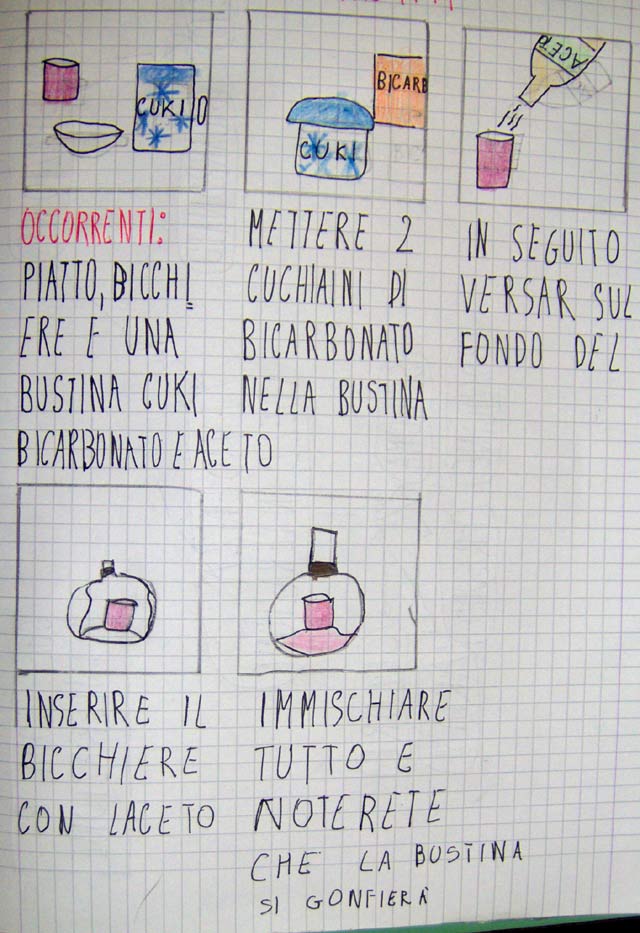 CUKI
BICARB
CUKI
ACETO
OCCORRENTI:
PIATTO, BICCHI
ERE E UNA
BUSTINA CUKI
BICARBONATO E ACETO
METTERE 2
CUCHIAINI DI
BICARBONATO
NELLA BUSTINA
IN SEGUITO
VERSAR SUL
FONDO DEL
INSERIRE IL
BICCHIERE
CON LACETO
IMMISCHIARE
TUTTO E
NOTERETE
CHE LA BUSTINA
SI GONFIERÀ